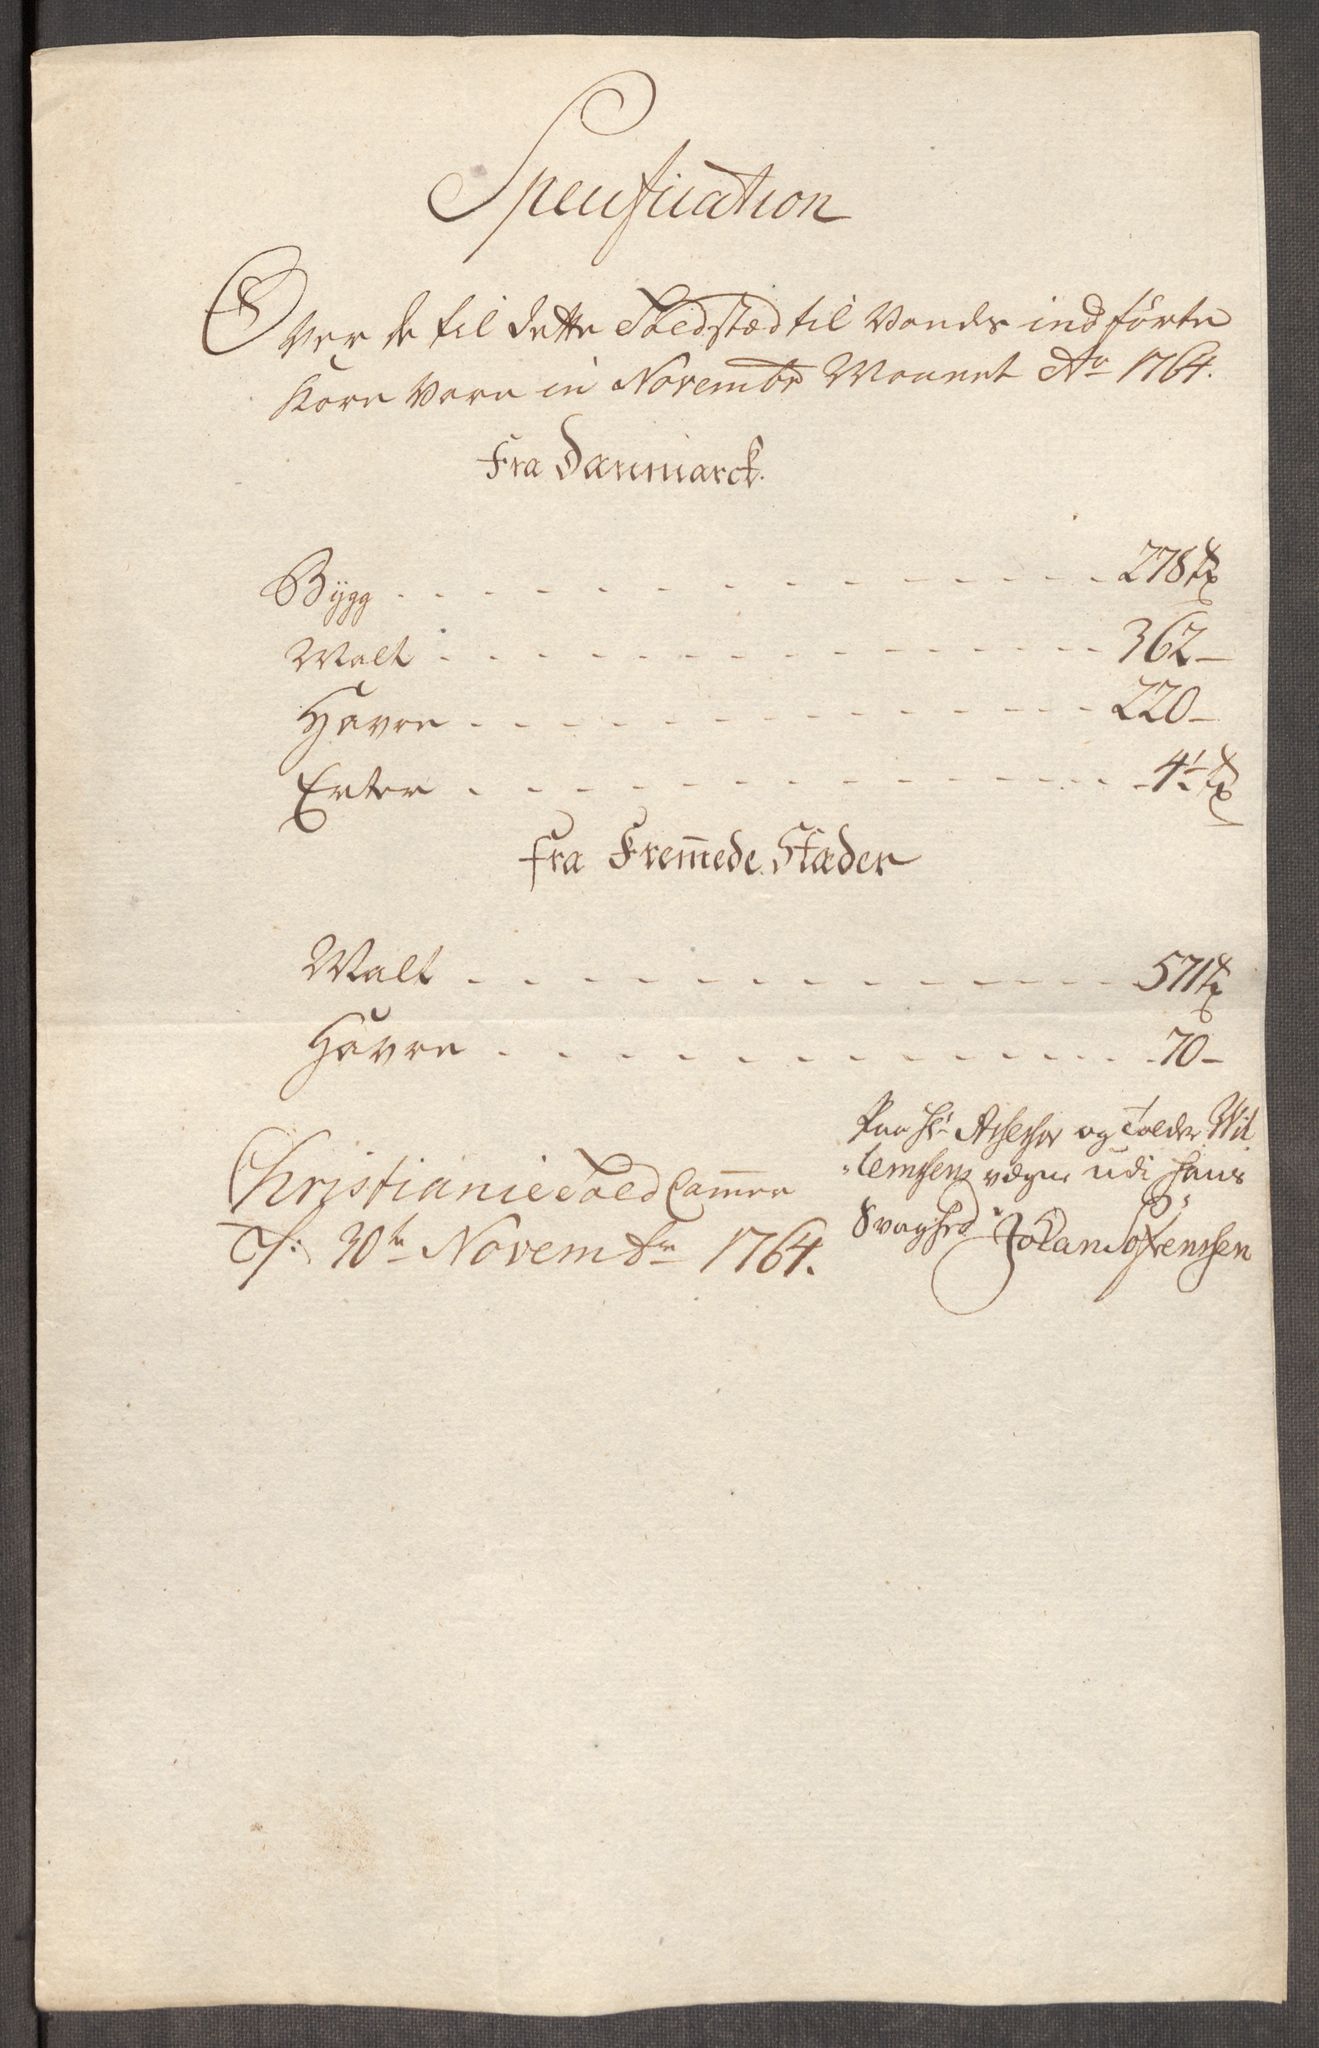 Specification
Over de til dette Toldstæd til Vands indførte
Korn Vare in Novembr Maanet Ao 1764.
Fra Danmarck.
Bÿgg 278 Tr
Malt 362 —
Havre 220 —
Erter 4½ Tr
fra Fremmede Stæder
Malt 571 Tr
Havre 70 —
Christianie Told Cammer
d: 30te Novembr 1764.
Paa Hr Assessor og Tolder Wil
lemsens vægne udi hans
Svaghed Johan Sørenssen